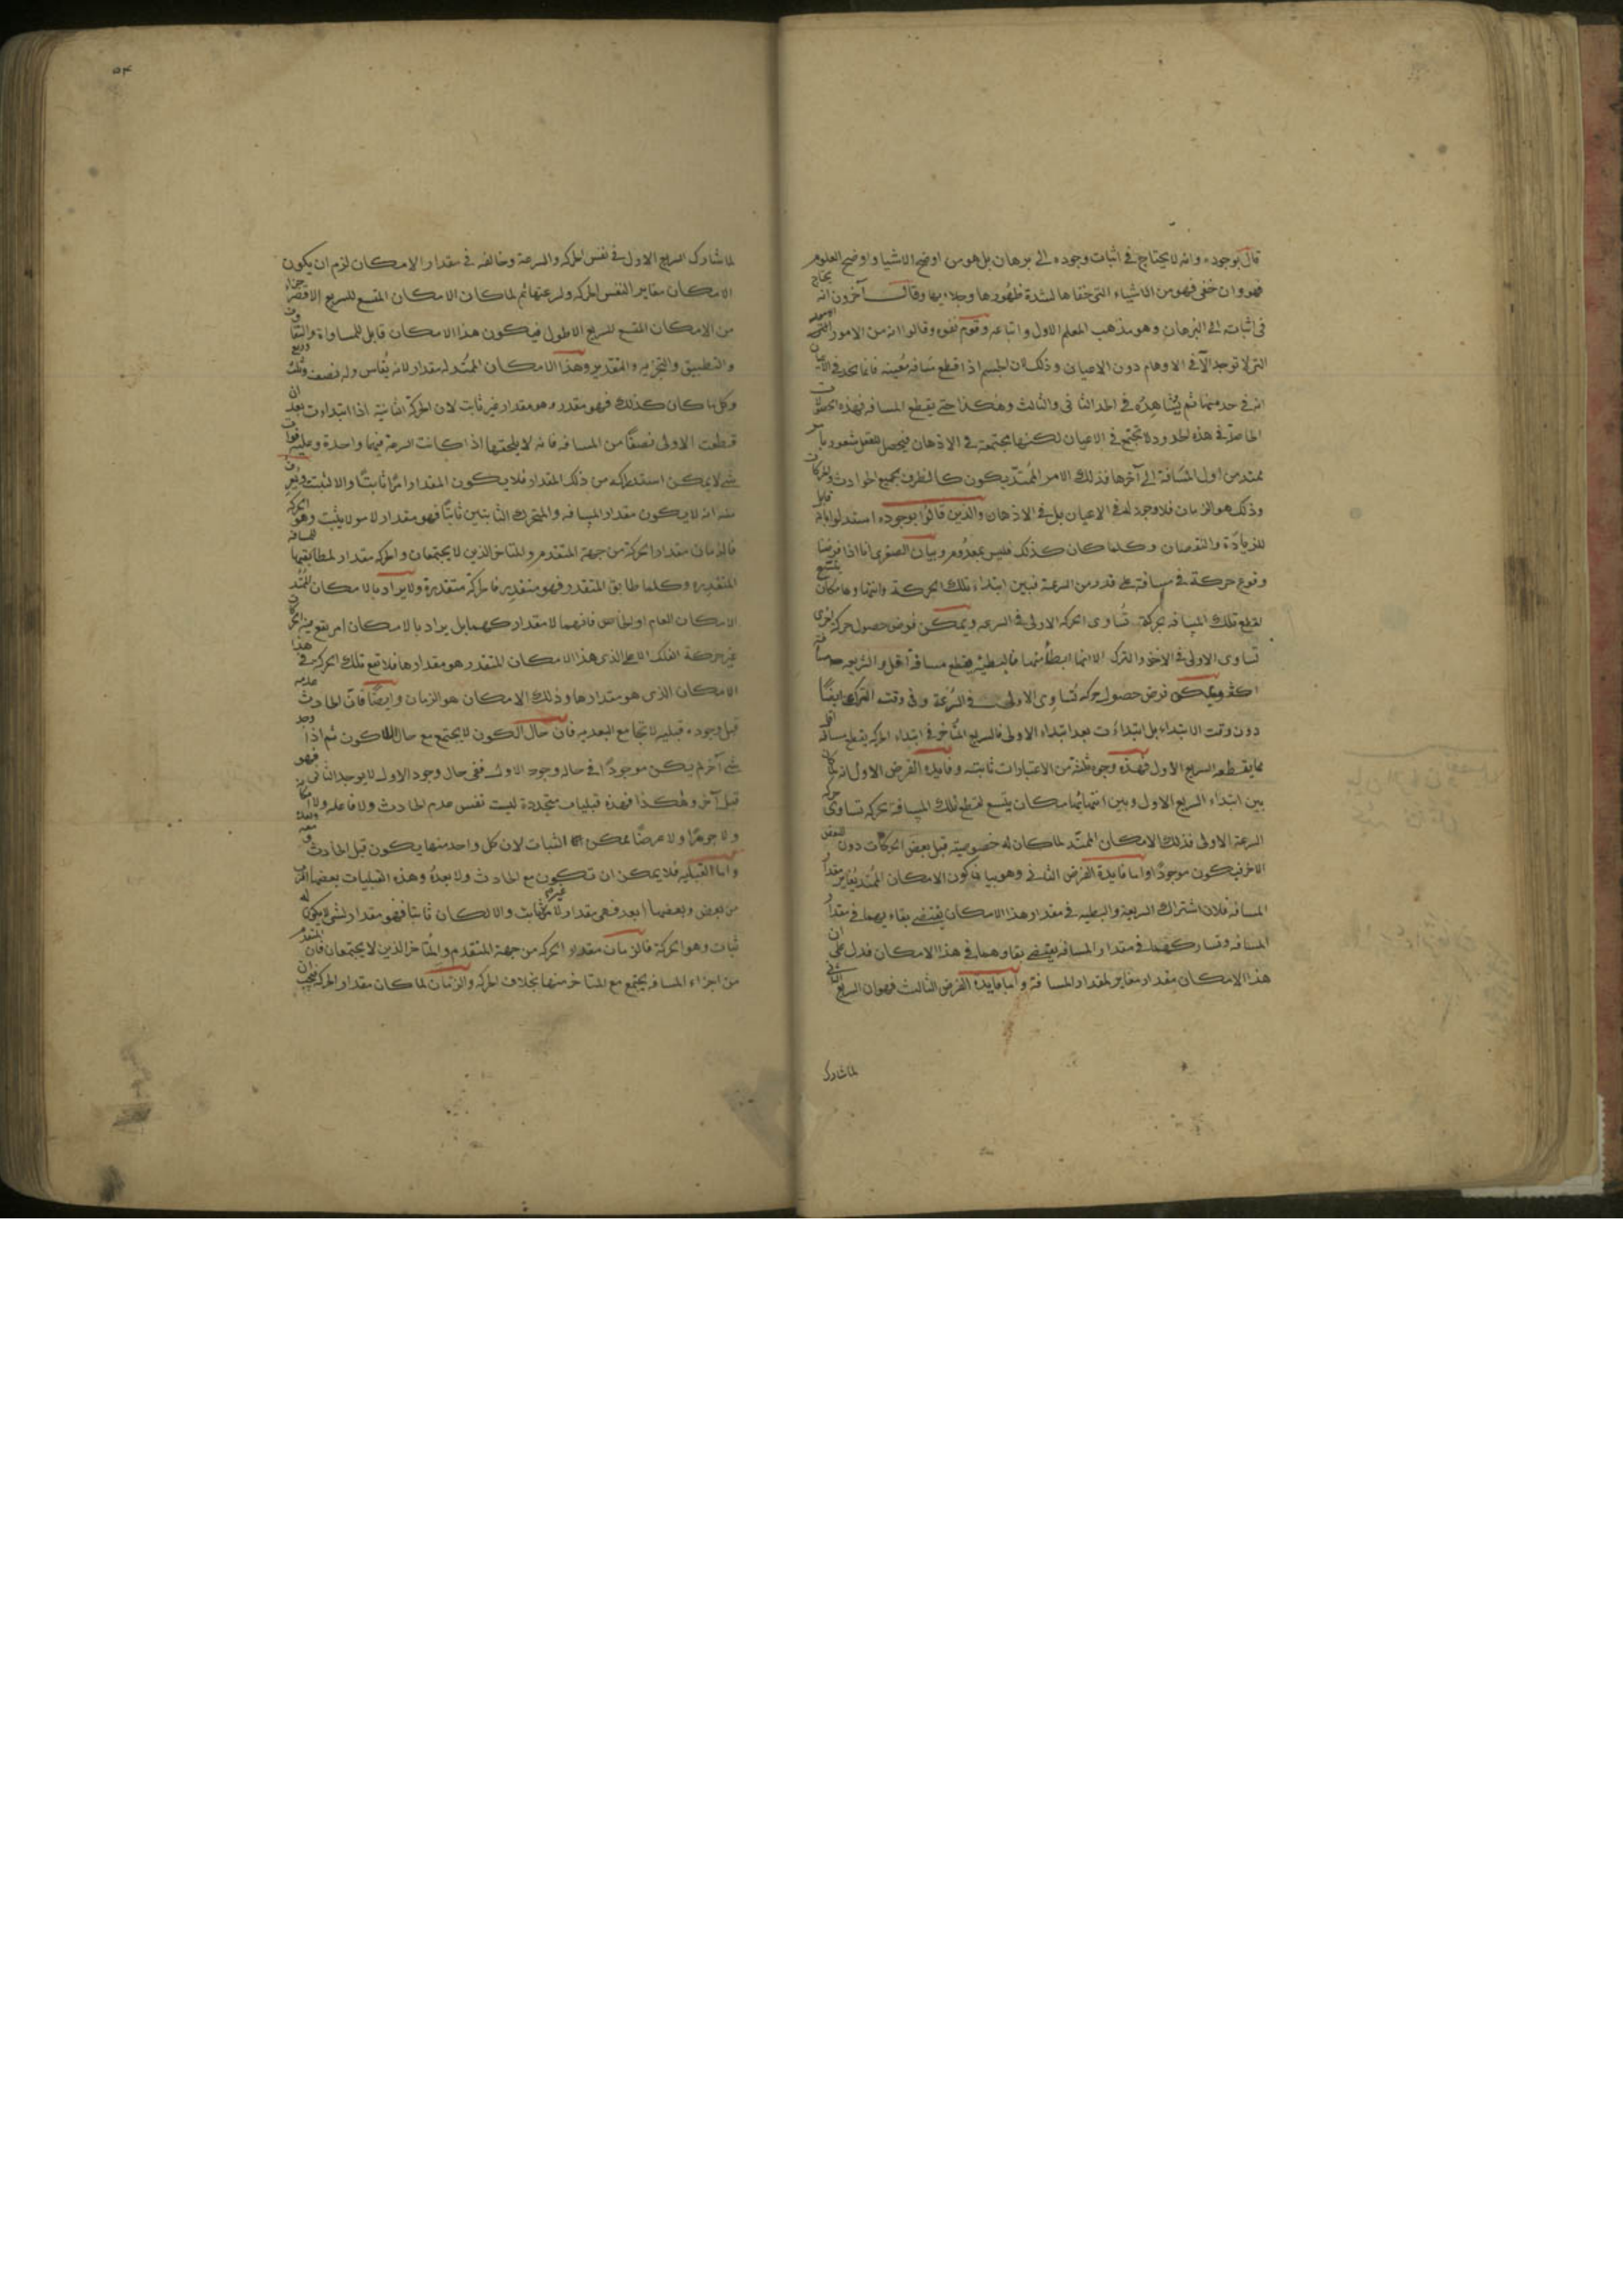 قال بوجوده وانه لا يحتاج في اثبات وجوده الى برهان بل هو من اوضح الاشيا واوضح العلوم
فهو وان خفى فهو من الاشياء التى خفاها لشدة ظهورها وجلايها وقال آخرون انه يحتاج
فى اثباته الى البرهان وهو مذهب المعلم الاول واتباعه وقوم نفوه وقالوا انه من الامور
التى لا توجد الا في الاوهام دون الاعيان وذلك لان الجسم اذا قطع مسافة معينه فانما نجد فى الاعيان
انه فى حد منها ثم يشاهده في الحد الثانى والثالث وهكذا حتى يقطع المسافه فهذه الحصولات
الحاصلة في هذه الحدود لا تجتمع فى الاعيان لكنها مجتمعة فى الاذهان فيحصل للعقل شعور بامر
ممتد من اول المسافة الى آخرها فذلك الامر الممتد يكون كالظرف لجميع الحوادث والحركات
وذلك هو الزمان فلا وجود له فى الاعيان بل فى الاذهان والذين قالوا بوجوده استدلوا بانه قابل
للزيادة والنقصان وكلما كان كذلك فليس بمعدوم وبيان الصغرى انا اذا فرضنا
وقوع حركة في مسافة على قدر من السرعة فبين ابتداء تلك الحركة وانتهاءها مكان يتسع
لقطع تلك المسافه بحركة تساوى الحركه الاولى فى السرعه ويمكن فرض حصول حركه اخرى
تساوى الاولى فى الاخذ والترك الا انها ابطأ منها فالبطيئه يقطع مسافة اقل والسريعه مسافة
اكثر ويمكن فرض حصول حركه تساوى الاولى فى السرعة وفى وقت الترك ايضًا
دون وقت الابتداء بل ابتداءت بعد ابتداء الاولى فالسريع المتأخر فى ابتداء الحركه يقطع مسافة اقل
مما يقطعه السريع الاول فهذه وجوه ثلثة من الاعتبارات ثابته وفايده الفرض الاول انه كان
بين ابتداء السريع الاول وبين انتهائها مكان يتسع لقطع تلك المسافة بحركه تساوى حركه
السرعة الاولى فذلك الامكان الممتد لما كان له خصوصيته قبل بعض الحركات دون البعض
الاخر فيكون موجودًا واما فايدة الفرض الثانى وهو بيان كون الامكان الممتد يغاير مقدار
المسافه فلان اشتراك السريعة والبطيه فى مقدار هذا الامكان يقتضى بقاءيهما فى مقدار
المسافه وتشاركهما فى مقدار المسافه يقتضى بقاوهما فى هذا الامكان فدل على ان
هذا الامكان مقدار مغاير لمقدار المسافة واما فايدة الفرض الثالث فهو ان السريع الثانى
لما شارك
لما شارك السريع الاول فى نفس الحركه والسرعة وخالفه فى مقدار الامكان لزم ان يكون
الامكان مغاير النفس الحركه ولسرعتها ثم لما كان الامكان المتسع للسريع الاقصر جزءا
من الامكان المتسع للسريع الاطول فيكون هذا الامكان قابل للمساواة والتفاوت
والتطبيق والتجزيه والتقدير وهذا الامكان الممتد له مقدار لانه يقاس وله نصف وثلث وربع
وكل ما كان كذلك فهو مقدر وهو مقدار غير ثابت لان الحركة الثانية اذا ابتداءت بعد ان
قطعت الاولى نصفًا من المسافه فانه لا يلحقها اذا كانت السرعة فيهما واحدة وعليه فوات
شى لا يمكن استدراكه من ذلك المقدار فلا يكون المقدار امرًا ثابتًا والا لثبت
منه انه لا يكون مقدار المسافه والمتحرك الثابتين ثابتًا فهو مقدار لامر لا يثبت وهو الحركة
فالزمان مقدار الحركة من جهة المتقدم والمتاخر الذين لا يجتمعان والحركه مقدار لمطابقتها للمسافه
المتقدره وكلما طابق المتقدر فهو متقدر فالحركة متقدرة ولا يراد بالامكان الممتد
الامكان العام او الخاص فانهما لا مقدار لهما بل يراد بالامكان امر يقع فيه الحركات
غير حركة الفلك الاعلى الذى هذا الامكان المتقدر هو مقدارها فلا تقع تلك الحركه فى هذا
الامكان الذى هو مقدارها وذلك الامكان هو الزمان وايضًا فان الحادث عدمه
قبل وجوده قبليه لا تجامع البعديه فان حال الكون لا يجتمع مع حال اللاكون ثم اذا وجد
شى آخر لم يكن موجودًا فى حاله وجود الاول ففى حال وجود الاول لا يوجد الثانى فهو
قبل آخر وهكذا فهذه قبليات متجددة ليست نفس عدم الحادث ولا فاعله ولا
ولا جوهرًا ولا عرضًا ممكن الثبات لان كل واحد منها يكون قبل الحادث ومعه وبعده
واما القبليه فلا يمكن ان تكون مع الحادث ولا بعدهُ وهذه القبليات بعضها اقرب
من بعض وبعضها ابعد فهى مقدار لامر غير ثابت والا لكان ثابتا فهو مقدار لشى لا يكون له
ثبات وهو الحركة فالزمان مقدار الحركه من جهة المتقدم والمتاخر الذين لا يجتمعان فان المتقدم
من اجزاء المسافه يجتمع مع المتاخر منها بخلاف الحركه والزمان لما كان مقدار الحركه فيجب ان